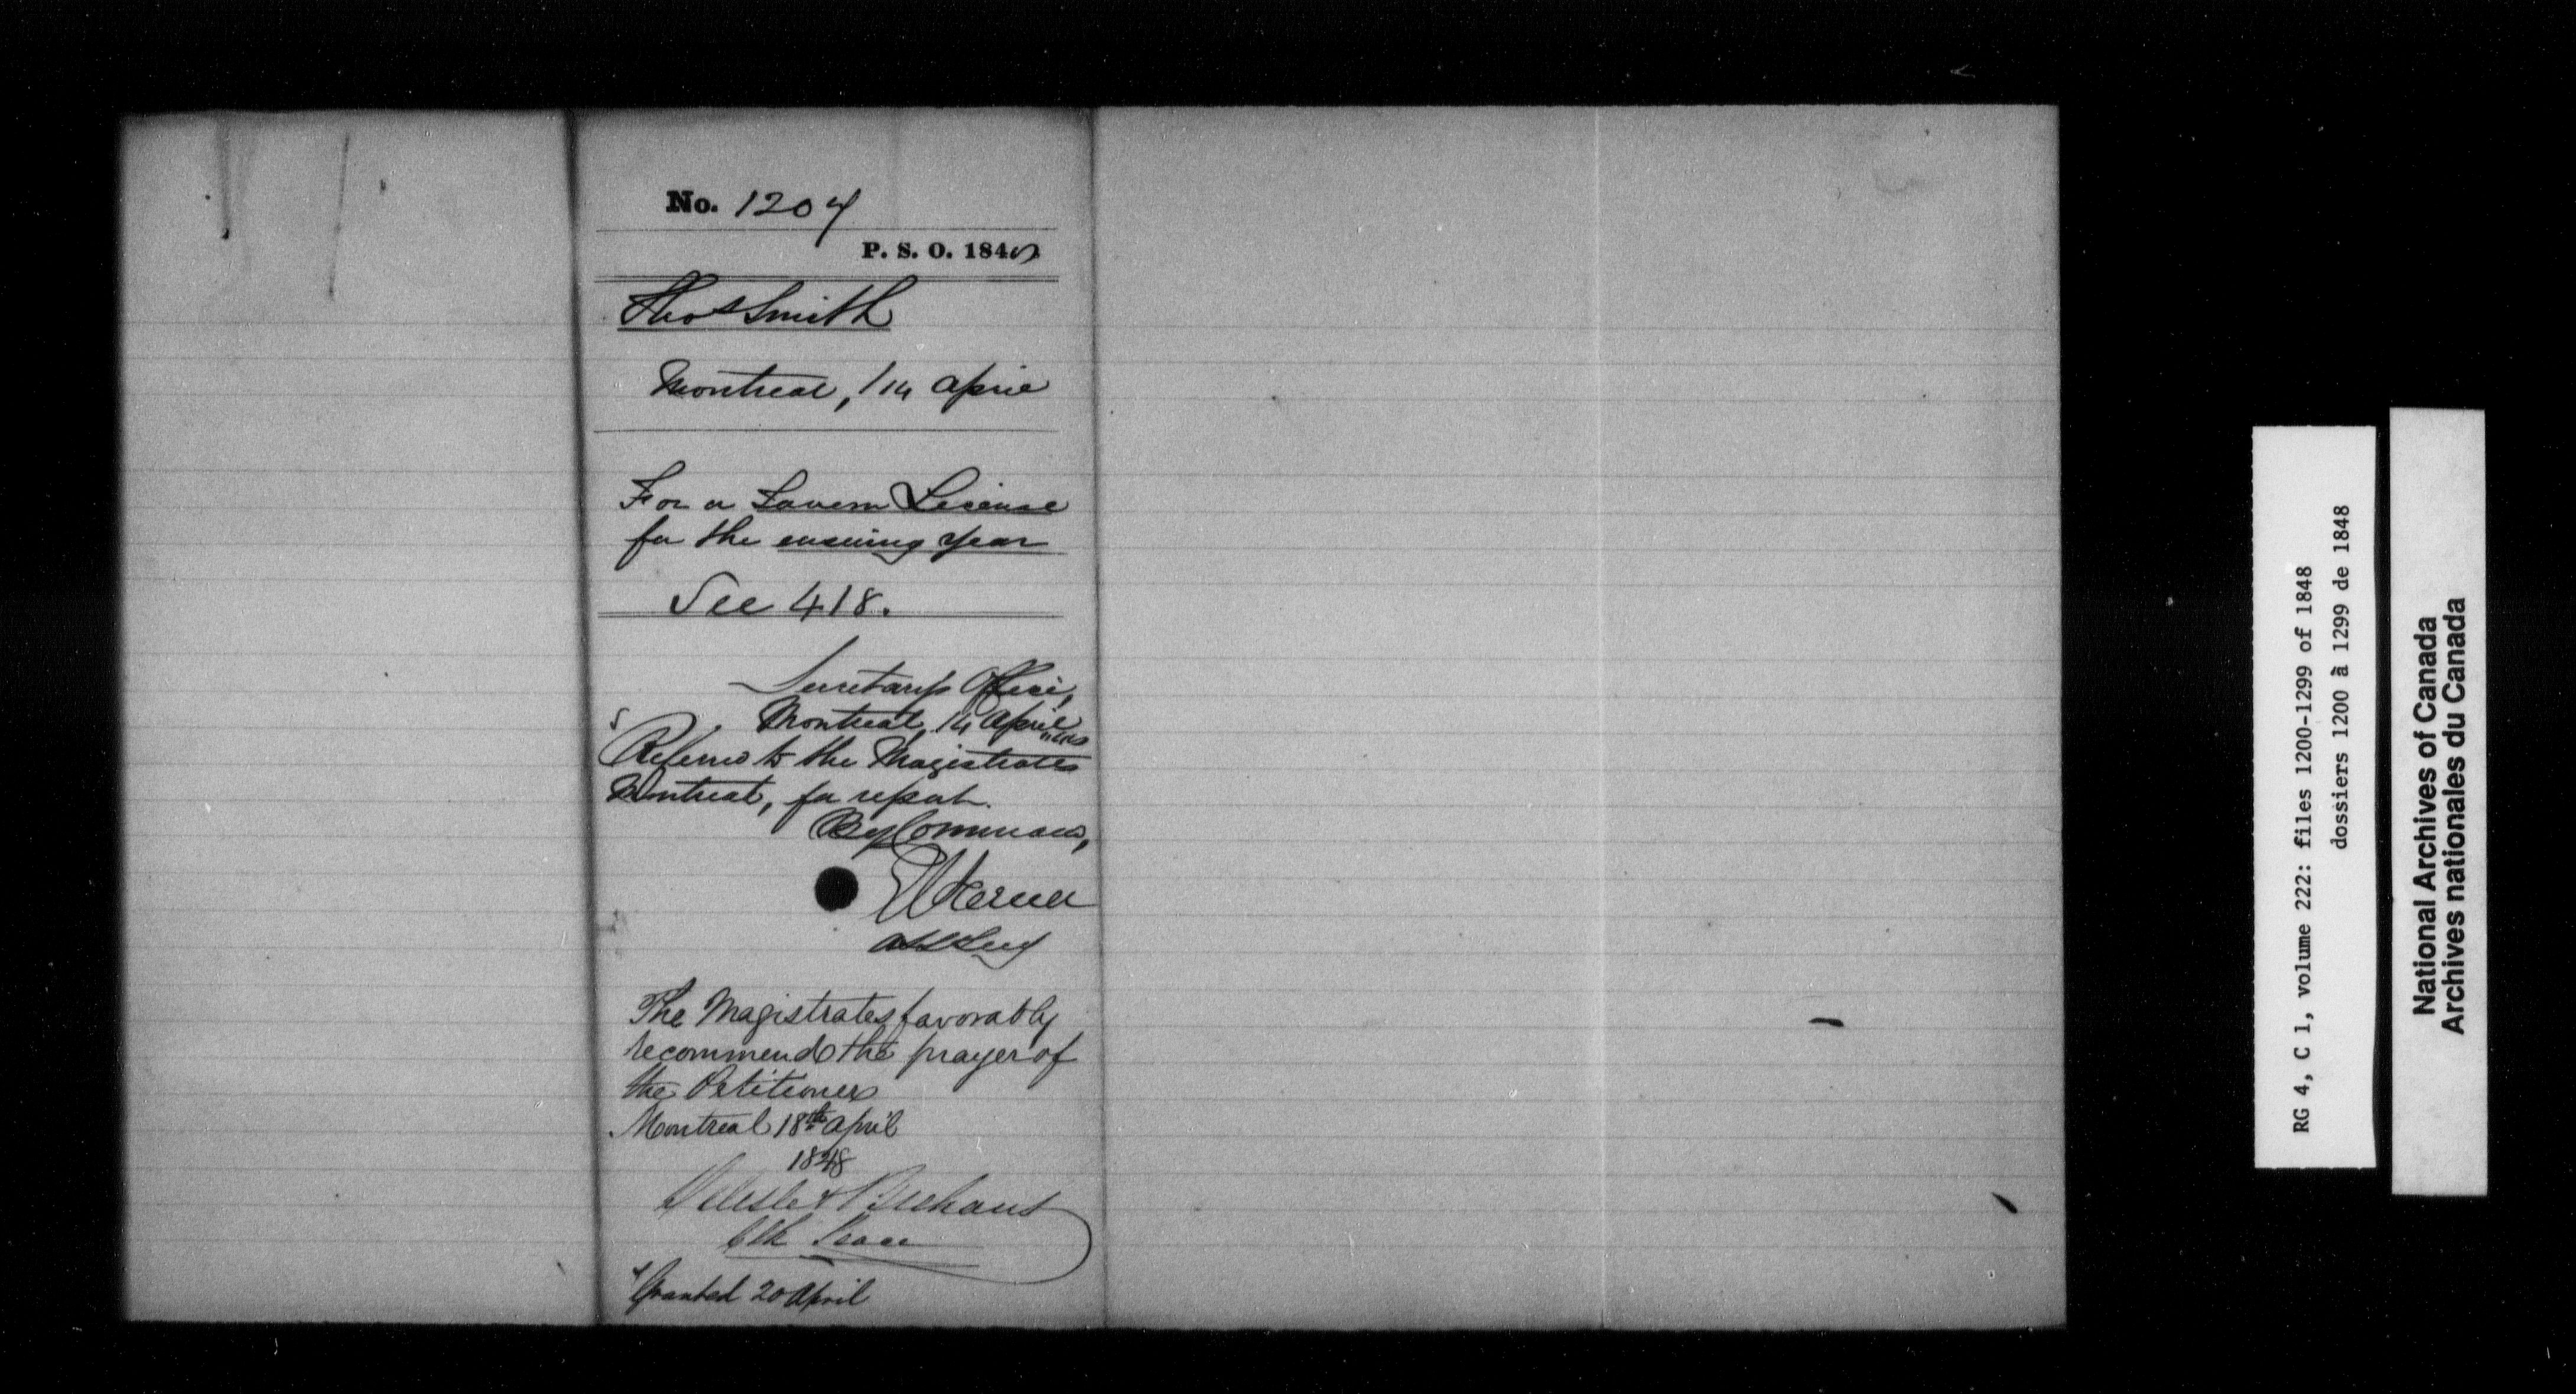 No. 1204
P. S. O. 1848
Thos Smith
Montreal, 14 April
For a Tavern License
for the ensuing year
See 418.
Secretary's Office,
Montreal, 14 April
Referred to the Magistrates
Montreal, for report.
By Command,
Ass Secy
The Magistrates favorably
recommend the prayer of
the Petitioner
Montreal 18th April
1848
Delisle & Brehaut
Clk Peace
Granted 20 April
RG 4, C 1, volume 222: files 1200-1299 of 1848
dossiers 1200 à 1299 de 1848
National Archives of Canada
Archives nationales du Canada